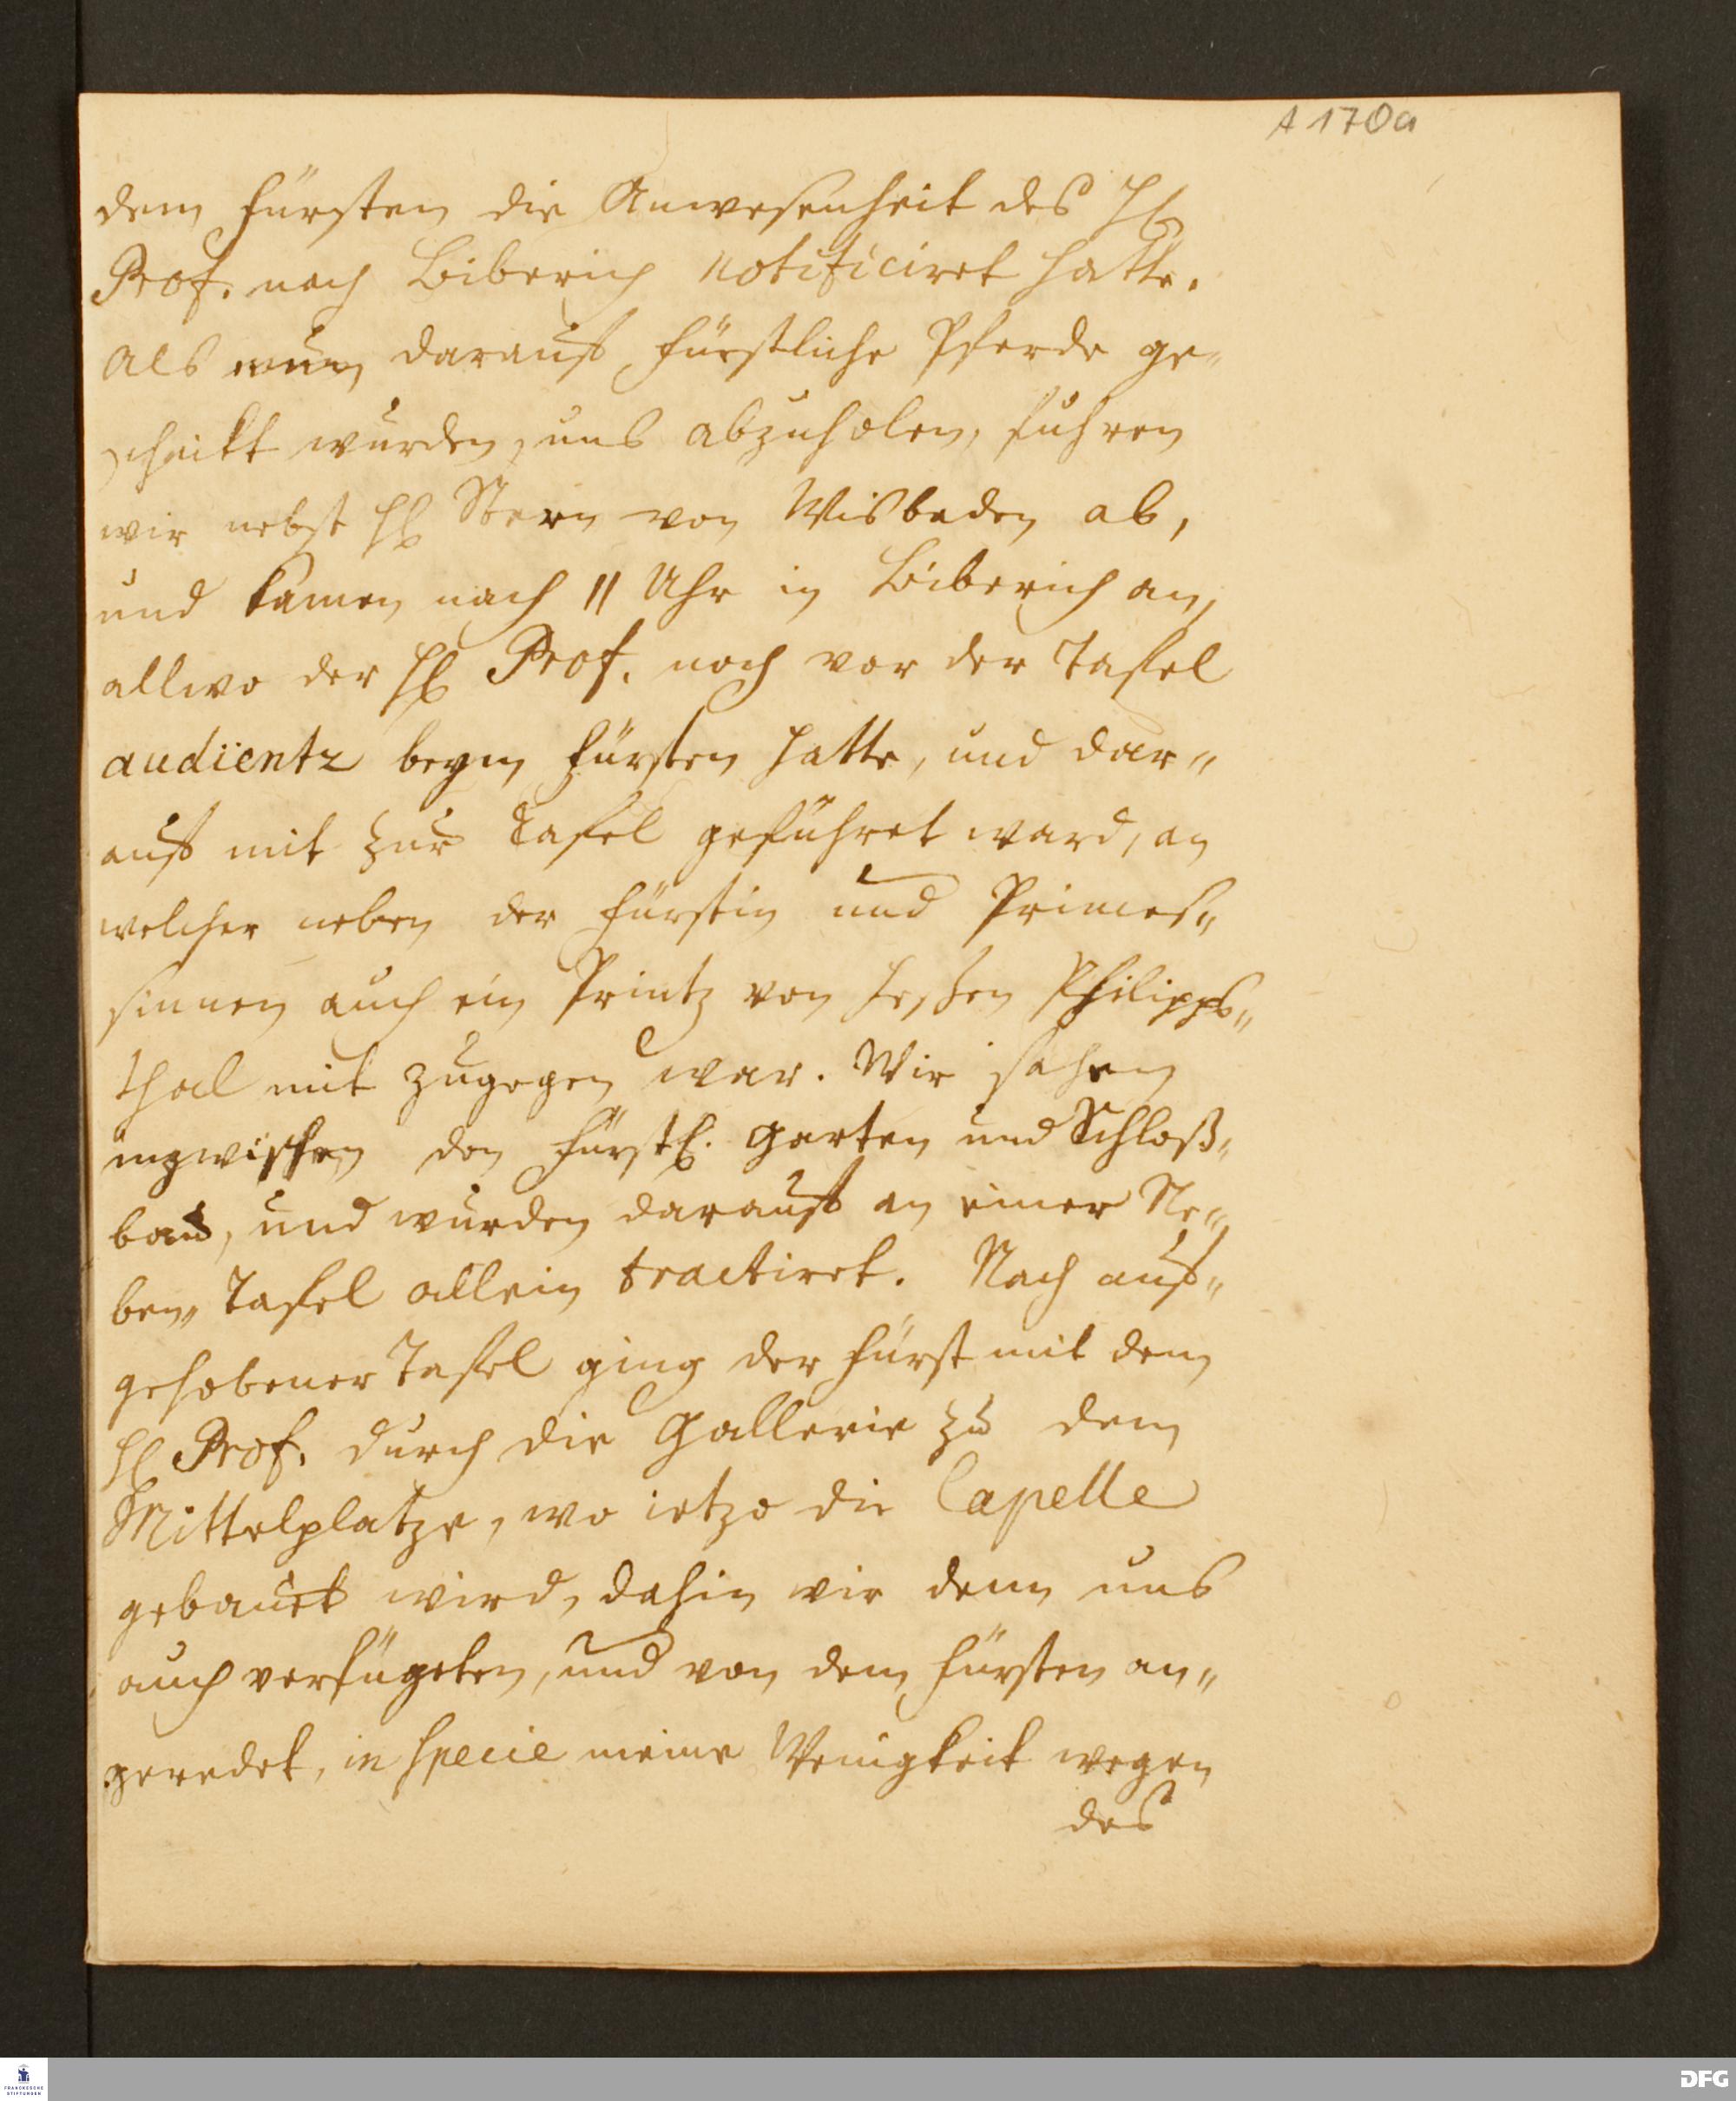 A 170a
dem Fürsten die Anwesenheit des H.
Prof. nach Biberich notificiret hatte.
Als nun darauf Fürstliche Pferde ge-
schickt wurden, uns abzuholen, fuhren
wir nebst H. Stern von Wisbaden ab,
und kamen nach 11 Uhr in Biberich an,
allwo der H. Prof. noch vor der Tafel
audientz beym Fürsten hatte, und dar-
auf mit zur Tafel geführet ward, an
welcher neben der Fürstin und Princes-
sinnen auch ein Printz von Hessen Philipps-
thal mit zugegen war. Wir sahen
inzwischen den Fürstl. Garten und Schloß-
bau, und wurden darauf an einer Ne-
ben-Tafel allein tractiret. Nach auf-
gehobener Tafel ging der Fürst mit dem
H. Prof. durch die Gallerie zu dem
Mittelplatze, wo ietzo die Capelle
gebauet wird, dahin wir denn uns
auch verfügeten, und von dem Fürsten an-
geredet, in specie meine Wenigkeit wegen
des
FRANCKESCHE
STIFTUNGEN
DFG